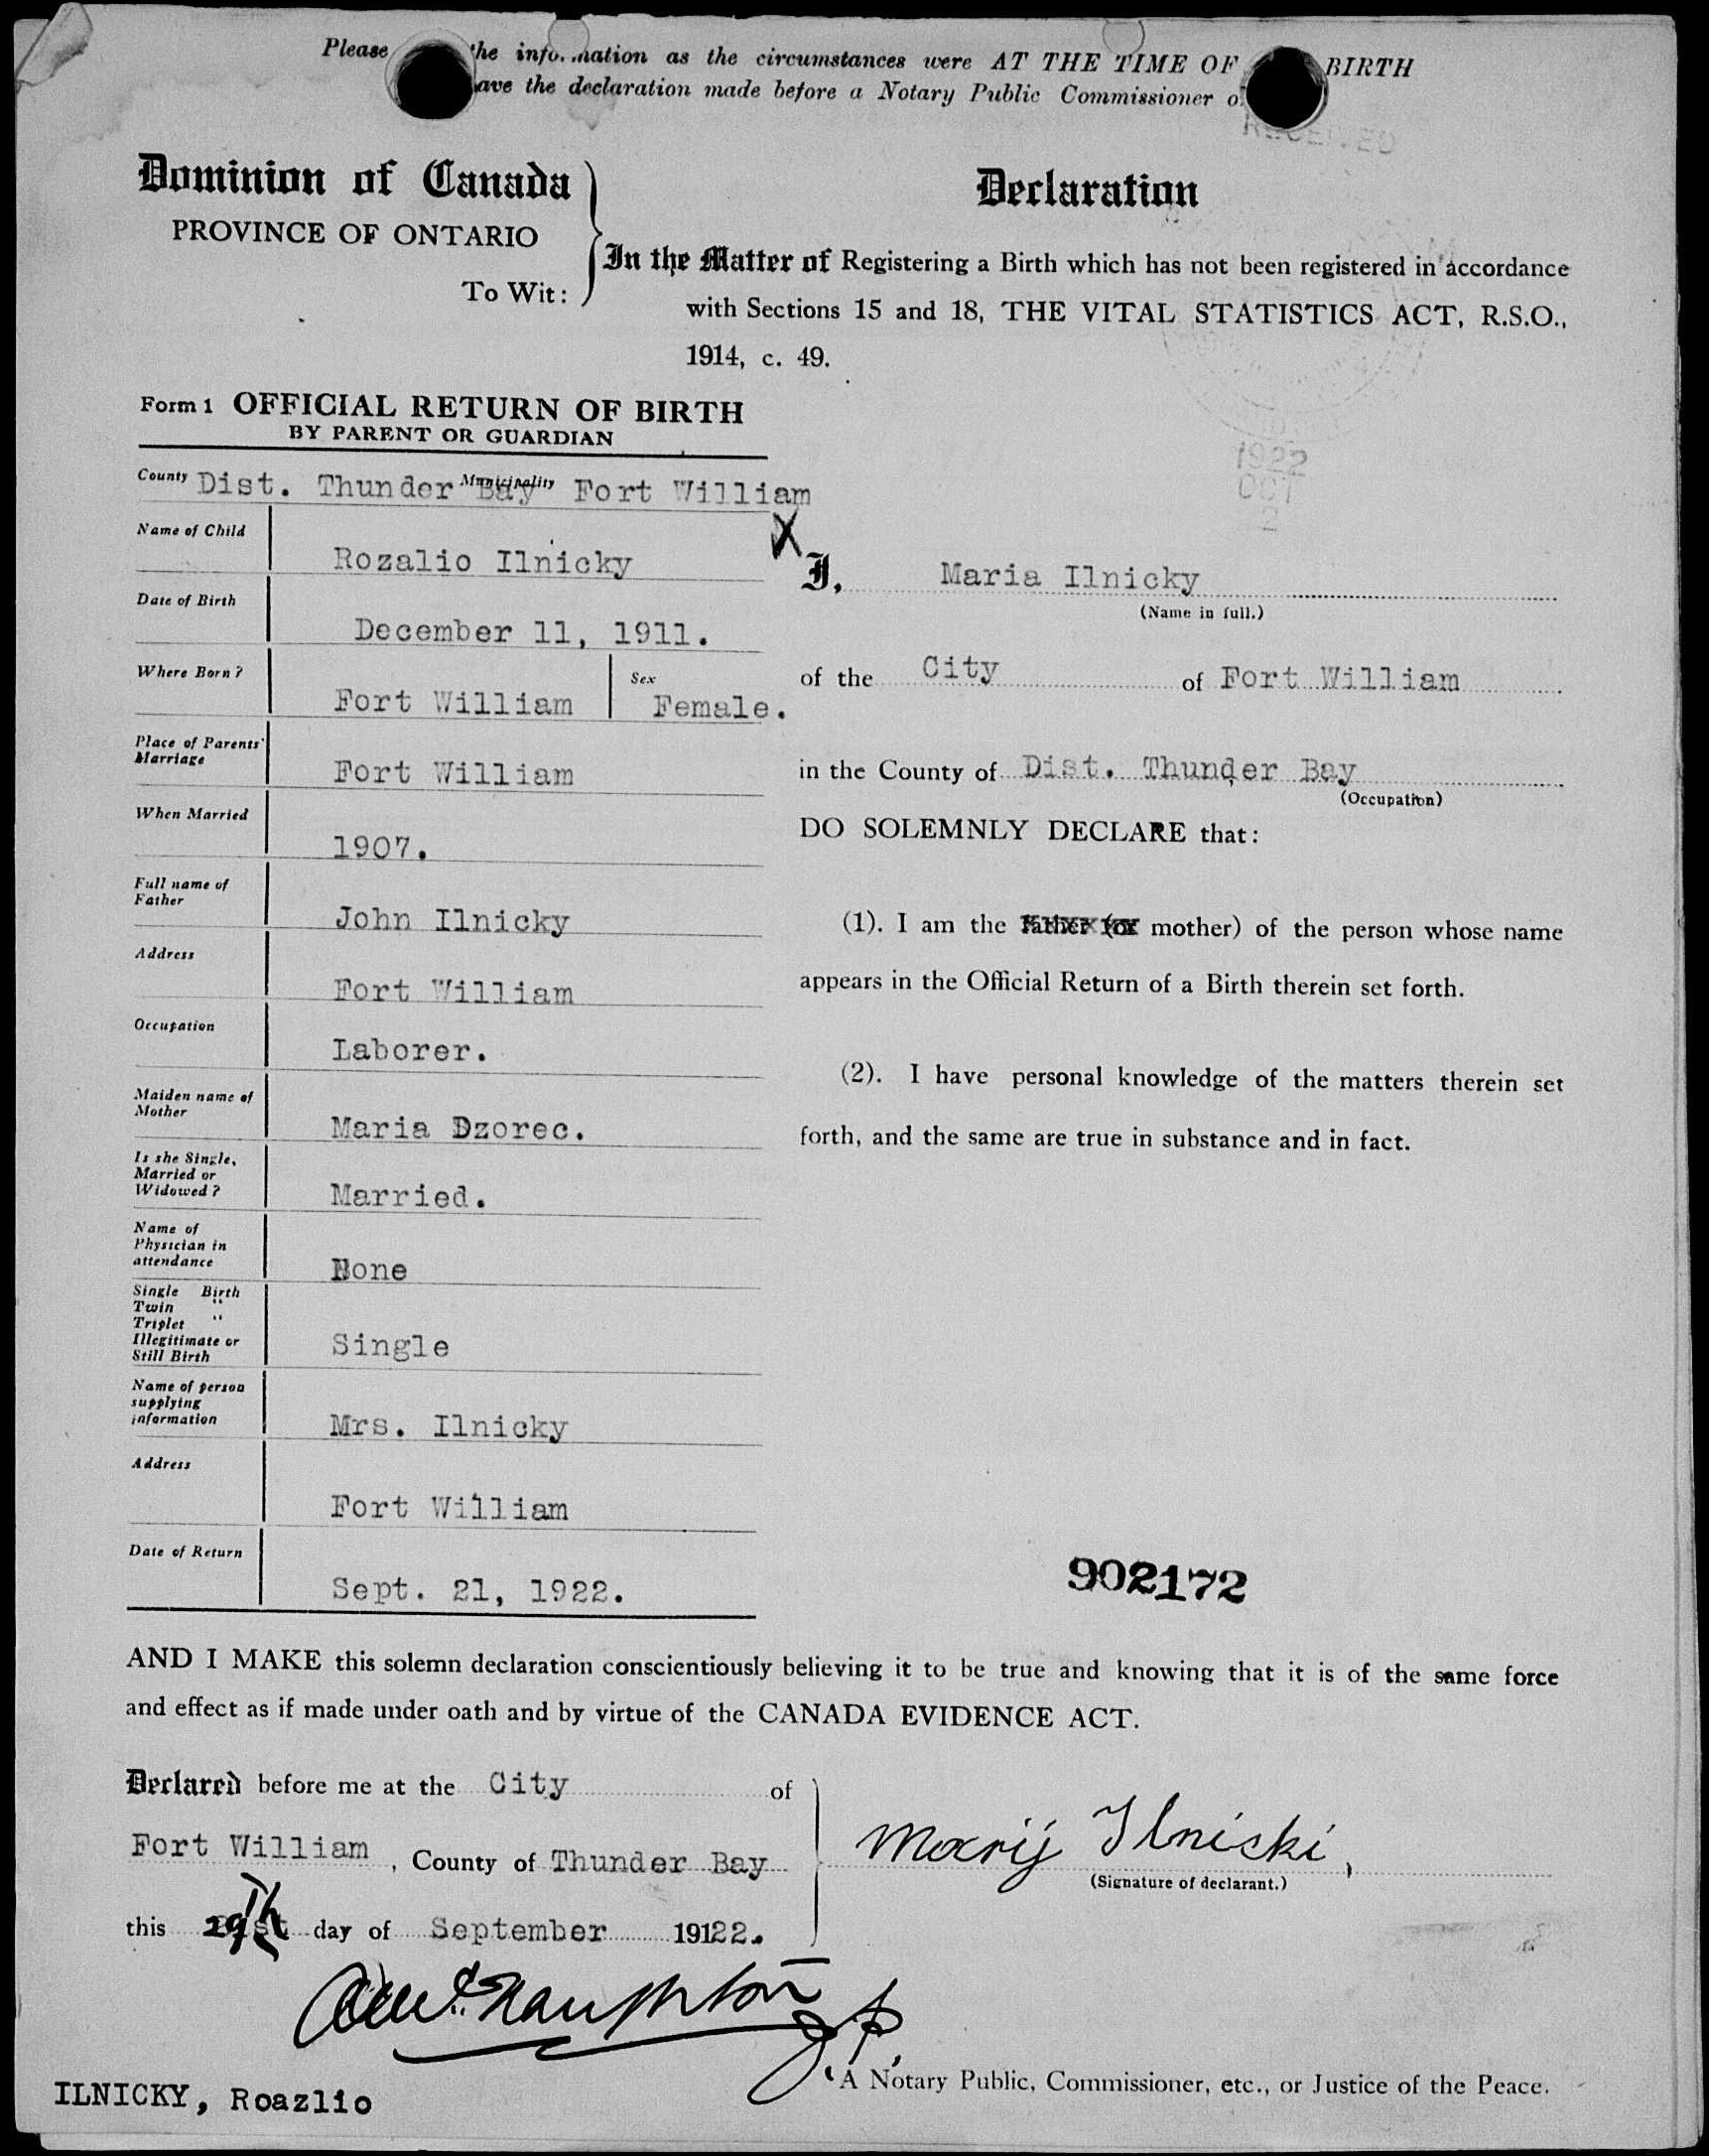 Please the information as the circumstances were AT THE TIME OF BIRTH
ave the declaration made before a Notary Public Commissioner o
RECEIVED
Dominion of Canada
PROVINCE OF ONTARIO
To Wit:
Declaration
In the Matter of Registering a Birth which has not been registered in accordance
with Sections 15 and 18, THE VITAL STATISTICS ACT, R.S.O.,
1914, c. 49.
Form 1 OFFICIAL RETURN OF BIRTH
BY PARENT OR GUARDIAN
1922
OCT
2
County Dist. Thunder Bay Municipality Fort William
Name of Child Rozalio Ilnicky
Date of Birth December 11, 1911.
Where Born? Fort William Sex Female.
Place of Parents' Marriage Fort William
When Married 1907.
Full name of Father John Ilnicky
Address Fort William
Occupation Laborer.
Maiden name of Mother Maria Dzorec.
Is she Single, Married or Widowed? Married.
Name of Physician in attendance None
Single Birth
Twin "
Triplet "
Illegitimate or
Still Birth Single
Name of person supplying information Mrs. Ilnicky
Address Fort William
Date of Return Sept. 21, 1922.
X
I, Maria Ilnicky
(Name in full.)
of the City of Fort William
in the County of Dist. Thunder Bay
(Occupation)
DO SOLEMNLY DECLARE that:
(1). I am the father (or mother) of the person whose name
appears in the Official Return of a Birth therein set forth.
(2). I have personal knowledge of the matters therein set
forth, and the same are true in substance and in fact.
902172
AND I MAKE this solemn declaration conscientiously believing it to be true and knowing that it is of the same force
and effect as if made under oath and by virtue of the CANADA EVIDENCE ACT.
Declared before me at the City of
Fort William, County of Thunder Bay
this 29th day of September 19122.
Marij Ilniski,
(Signature of declarant.)
J.P.
A Notary Public, Commissioner, etc., or Justice of the Peace.
ILNICKY, Roazlio